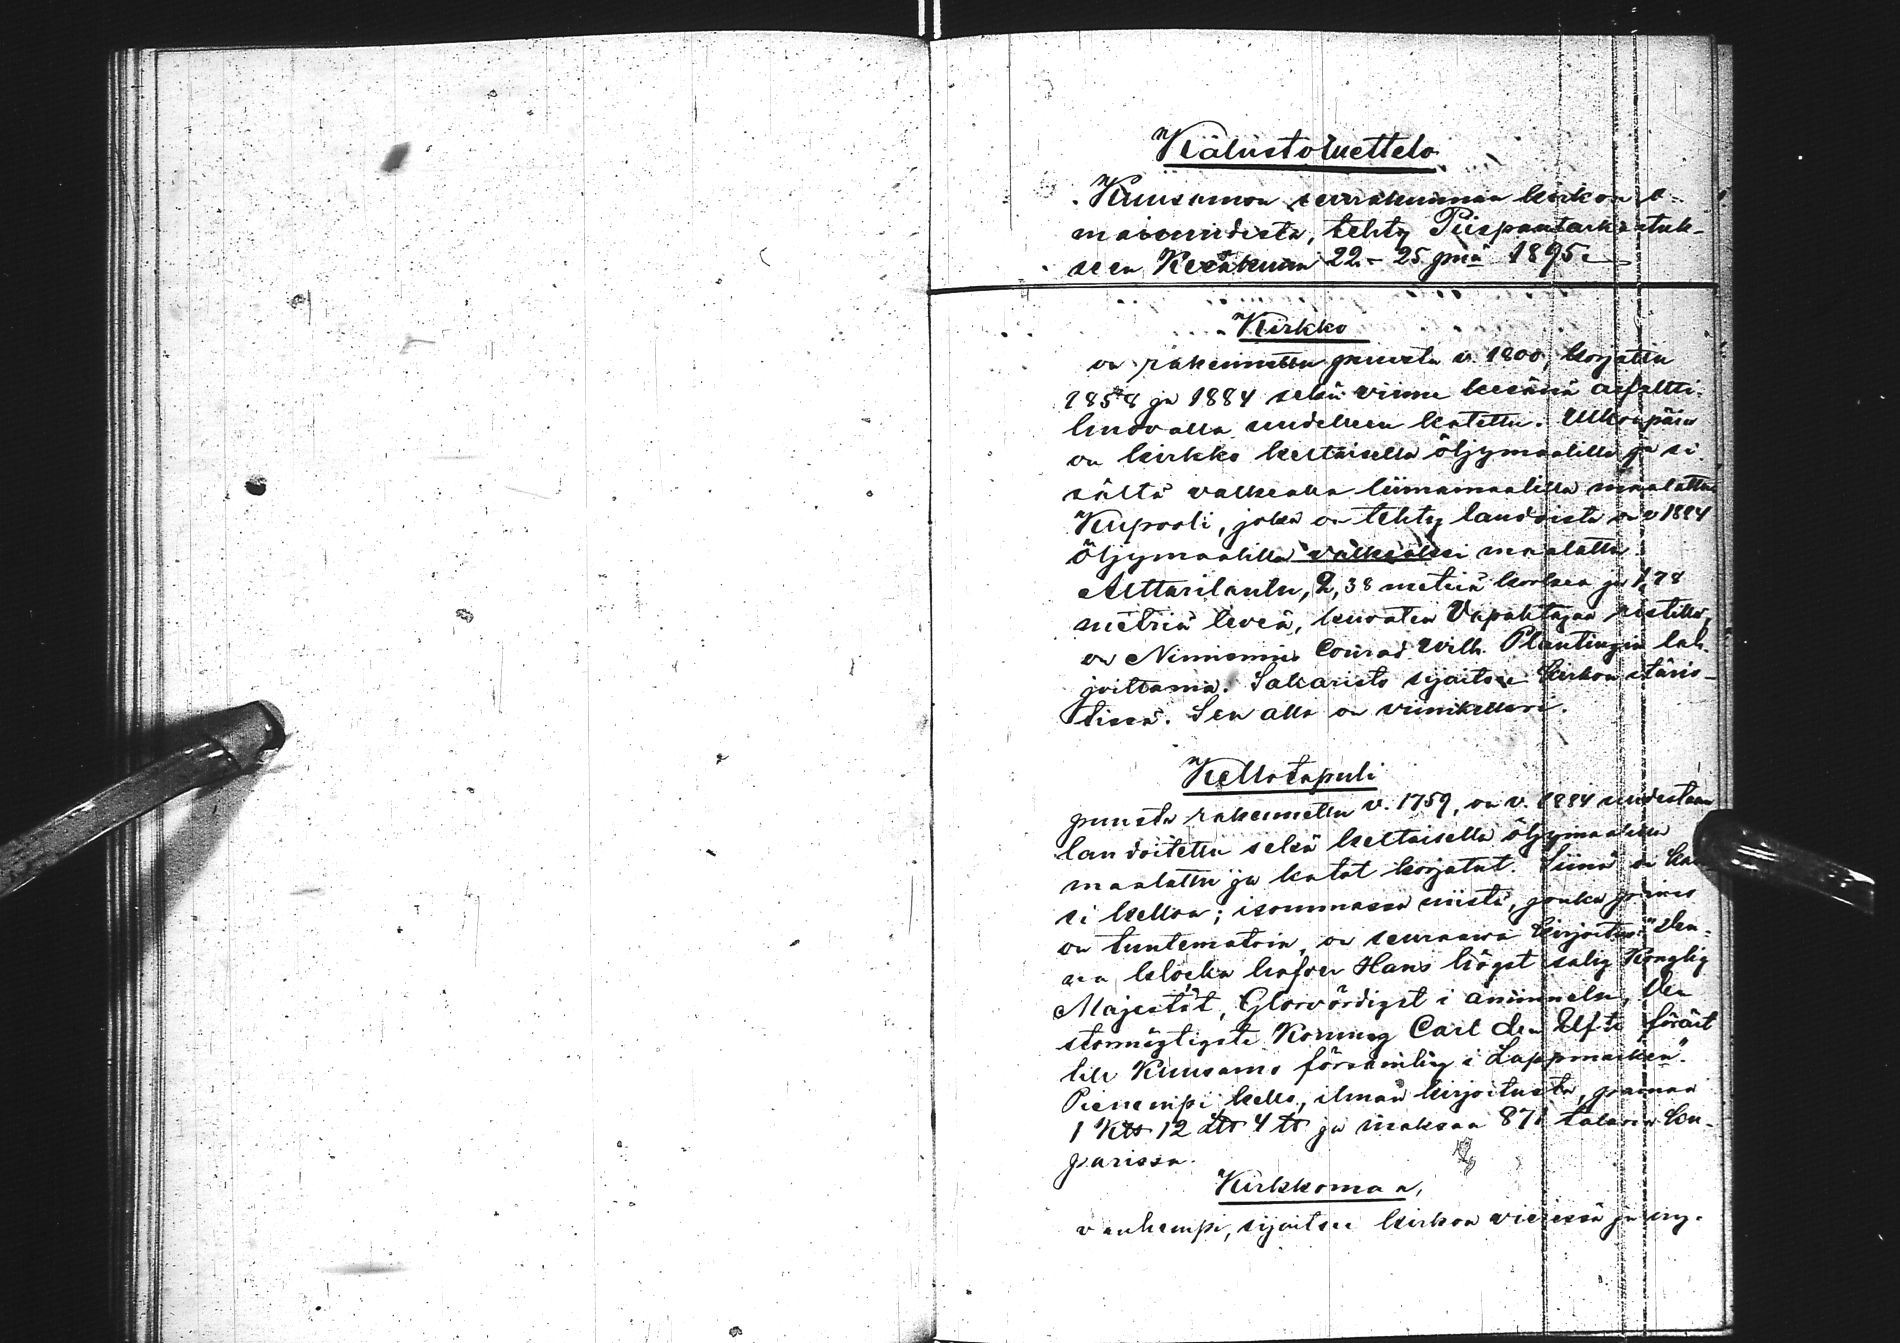 Kalustoluettelo
Kuusamon seurakunnan kirkon o-
maisuudesta, tehty Piispantarkastuk-
seen Kesäkuun 22-25 pnä 1895.
Kirkko
on rakennettu puusta v. 1800, korjattu
1858 ja 1884 sekä viime kesänä asfaltti-
huovalla uudelleen katettu. Ulkoapäin
on kirkko keltaisella öljymaalilla ja si-
sältä valkealla liimamaalilla maalattu
Kupooli, joka on tehty laudoista on v 1884
öljymaalilla valkeaksi maalattu
Alttaritaulu, 2,38 metriä korkea ja 1,78
metriä leveä, kuvaten Vapahtajaa ristillä,
on Nimismies Conrad Wilh. Planting'in lah-
joittama. Sakaristo sijaitsee kirkon itäris-
tissä. Sen alla on viinikellari.
Kellotapuli
puusta rakennettu v. 1759, on v. 1884 uudestaan
laudoitettu sekä keltaisella öljymaalilla
maalattu ja katot korjatut. Siinä on kak
si kelloa; isommassa niistä, jonka paino
on tuntematoin, on seuraava kirjoitus: "Den-
na klocka hafver Hans högst salig Konglig
Majestät, Glorvördigst i åminnelse, den
stormägtigste Konung Carl den Elfte förärt
till Kuusamo församling i Lappmarken".
Pienempi kello, ilman kirjoitusta, painaa
1 ℔ 12 ℔ 4 ℔ ja maksaa 871 talaria ku-
parissa.
Kirkkomaa,
vanhempi, sijaitsee kirkon vieressä ja ny-